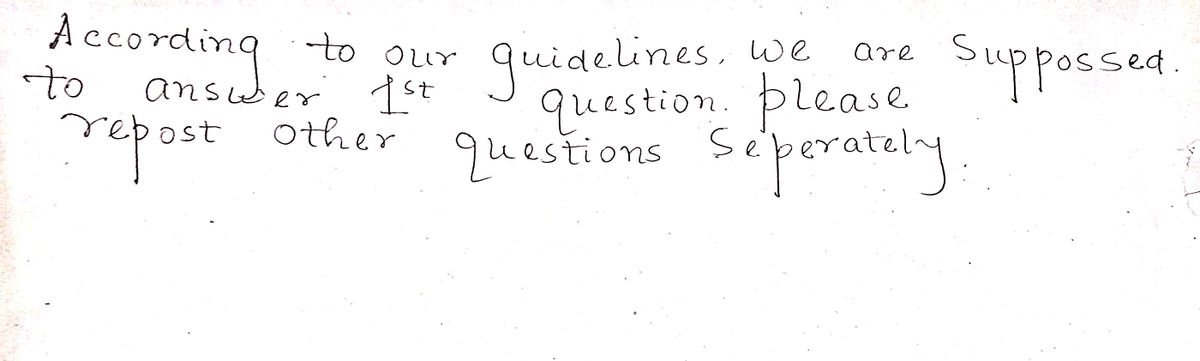 According to our guidelines, we are Suppossed.
to answer 1st question. please
repost other questions Seperately.